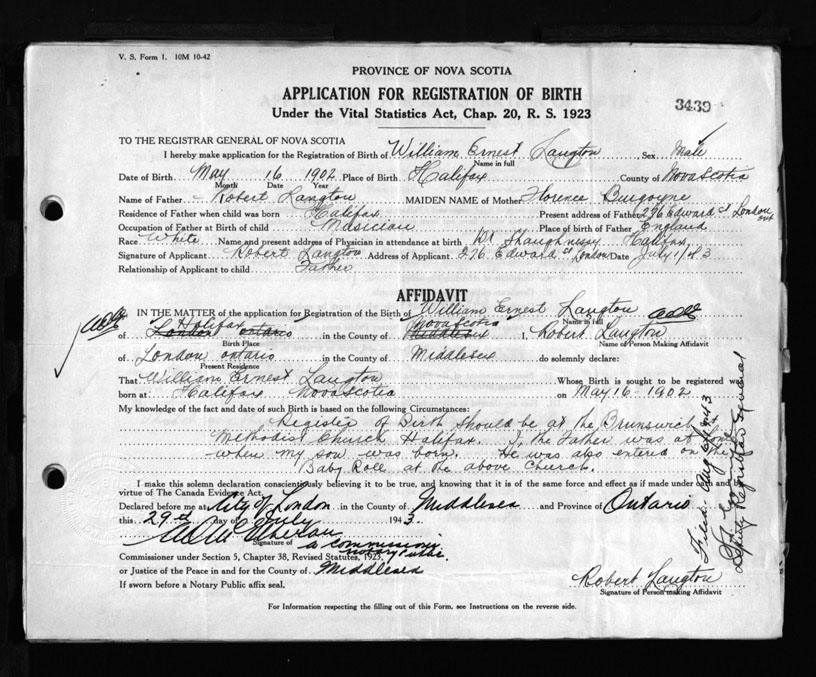 V. S. Form 1. 10M 10-42
PROVINCE OF NOVA SCOTIA
APPLICATION FOR REGISTRATION OF BIRTH
Under the Vital Statistics Act, Chap. 20, R. S. 1923
3439
TO THE REGISTRAR GENERAL OF NOVA SCOTIA
I hereby make application for the Registration of Birth of William Ernest Langton Sex Male
Name in full
Date of Birth May 16 1902 Place of Birth Halifax County of Nova Scotia
Month Date Year
Name of Father Robert Langton MAIDEN NAME of Mother Florence Burgoyne
Residence of Father when child was born Halifax Present address of Father 276 Edward St London Ont
Occupation of Father at Birth of child Musician Place of birth of Father England
Race White Name and present address of Physician in attendance at birth Dr Shaughnessy Halifax
Signature of Applicant Robert Langton Address of Applicant 276 Edward St London Date July
Relationship of Applicant to child Father
AFFIDAVIT
IN THE MATTER of the application for Registration of the Birth of William Ernest Langton
Name in full
Halifax Nova Scotia
of London Ontario in the County of Middlesex I, Robert Langton
Birth Place Name of Person Making Affidavit
of London Ontario in the County of Middlesex do solemnly declare:
Present Residence
That William Ernest Langton Whose Birth is sought to be registered was
born at Halifax Nova Scotia on May 16 - 1902
My knowledge of the fact and date of such Birth is based on the following Circumstances:
Register of Birth should be at the Brunswick St
Methodist Church Halifax. I, the Father was at home
when my son was born. He was also entered on the
Baby Roll at the above Church.
I make this solemn declaration conscientiously believing it to be true, and knowing that it is of the same force and effect as if made under oath and by
virtue of The Canada Evidence Act.
Declared before me at City of London in the County of Middlesex and Province of Ontario
this 29th day of July 1943.
Signature of a commissioner
notary public
Commissioner under Section 5, Chapter 38, Revised Statutes, 1923,
or Justice of the Peace in and for the County of Middlesex
If sworn before a Notary Public affix seal.
Robert Langton
Signature of Person making Affidavit
For Information respecting the filling out of this Form, see Instructions on the reverse side.
Deputy Registrar General